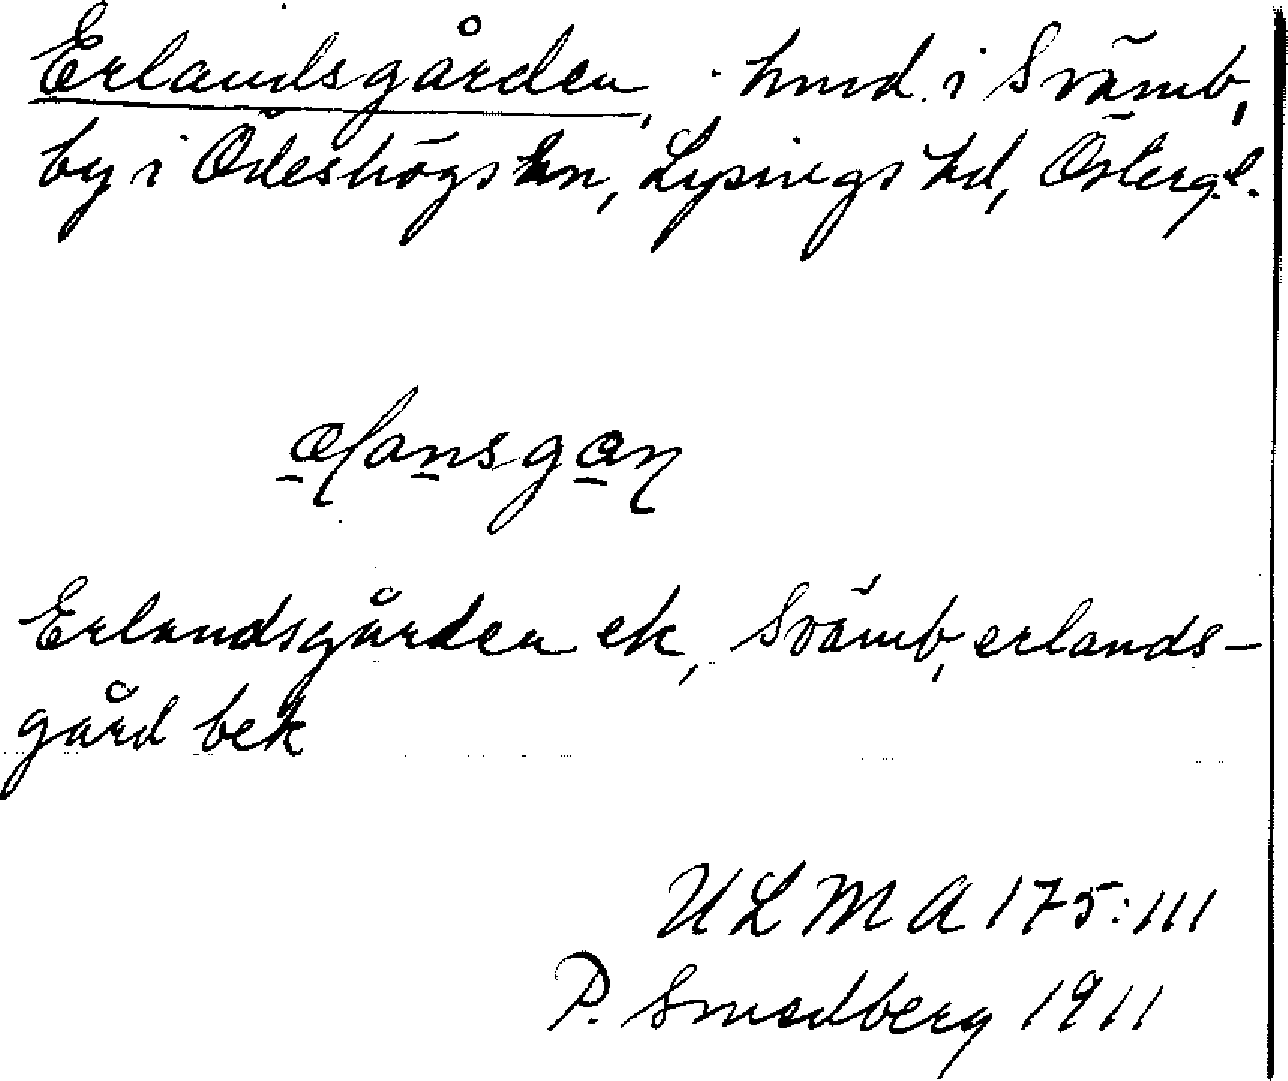 Erlandsgården, hmd. i Svämb,
by i Ödeshögs sn, Lysings hd, Österg.l.
Erlandsgården ek, Svämb, erlands-
gård bek
ULMA 175:111
P. Smedberg 1911